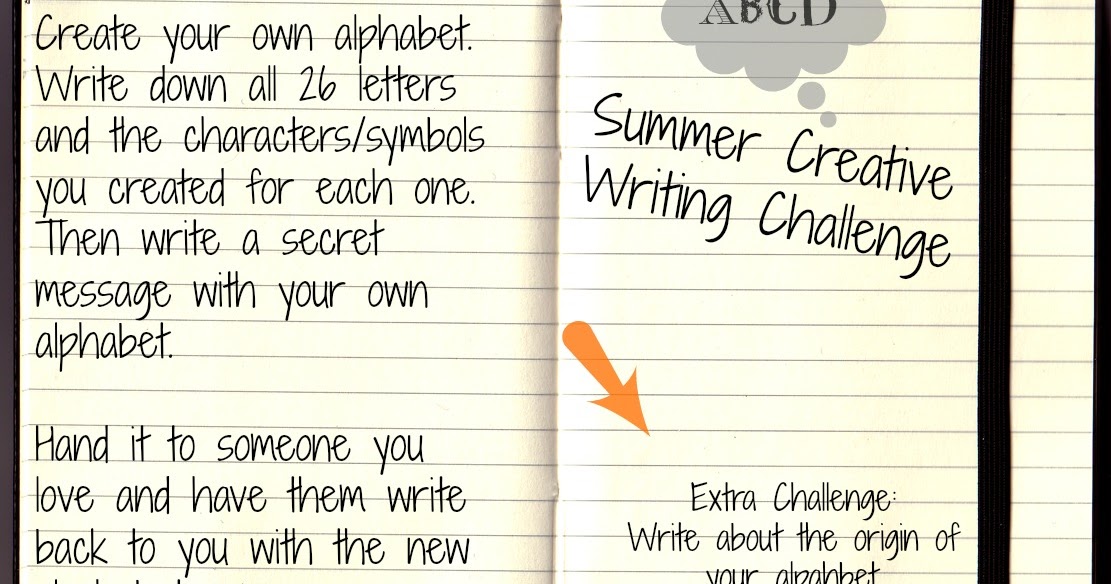 Create your own alphabet.
Write down all 26 letters
and the characters/symbols
you created for each one.
Then write a secret
message with your own
alphabet.
Hand it to someone you
love and have them write
back to you with the new
ABCD
Summer Creative
Writing Challenge
Extra Challenge:
Write about the origin of
your alpahbet